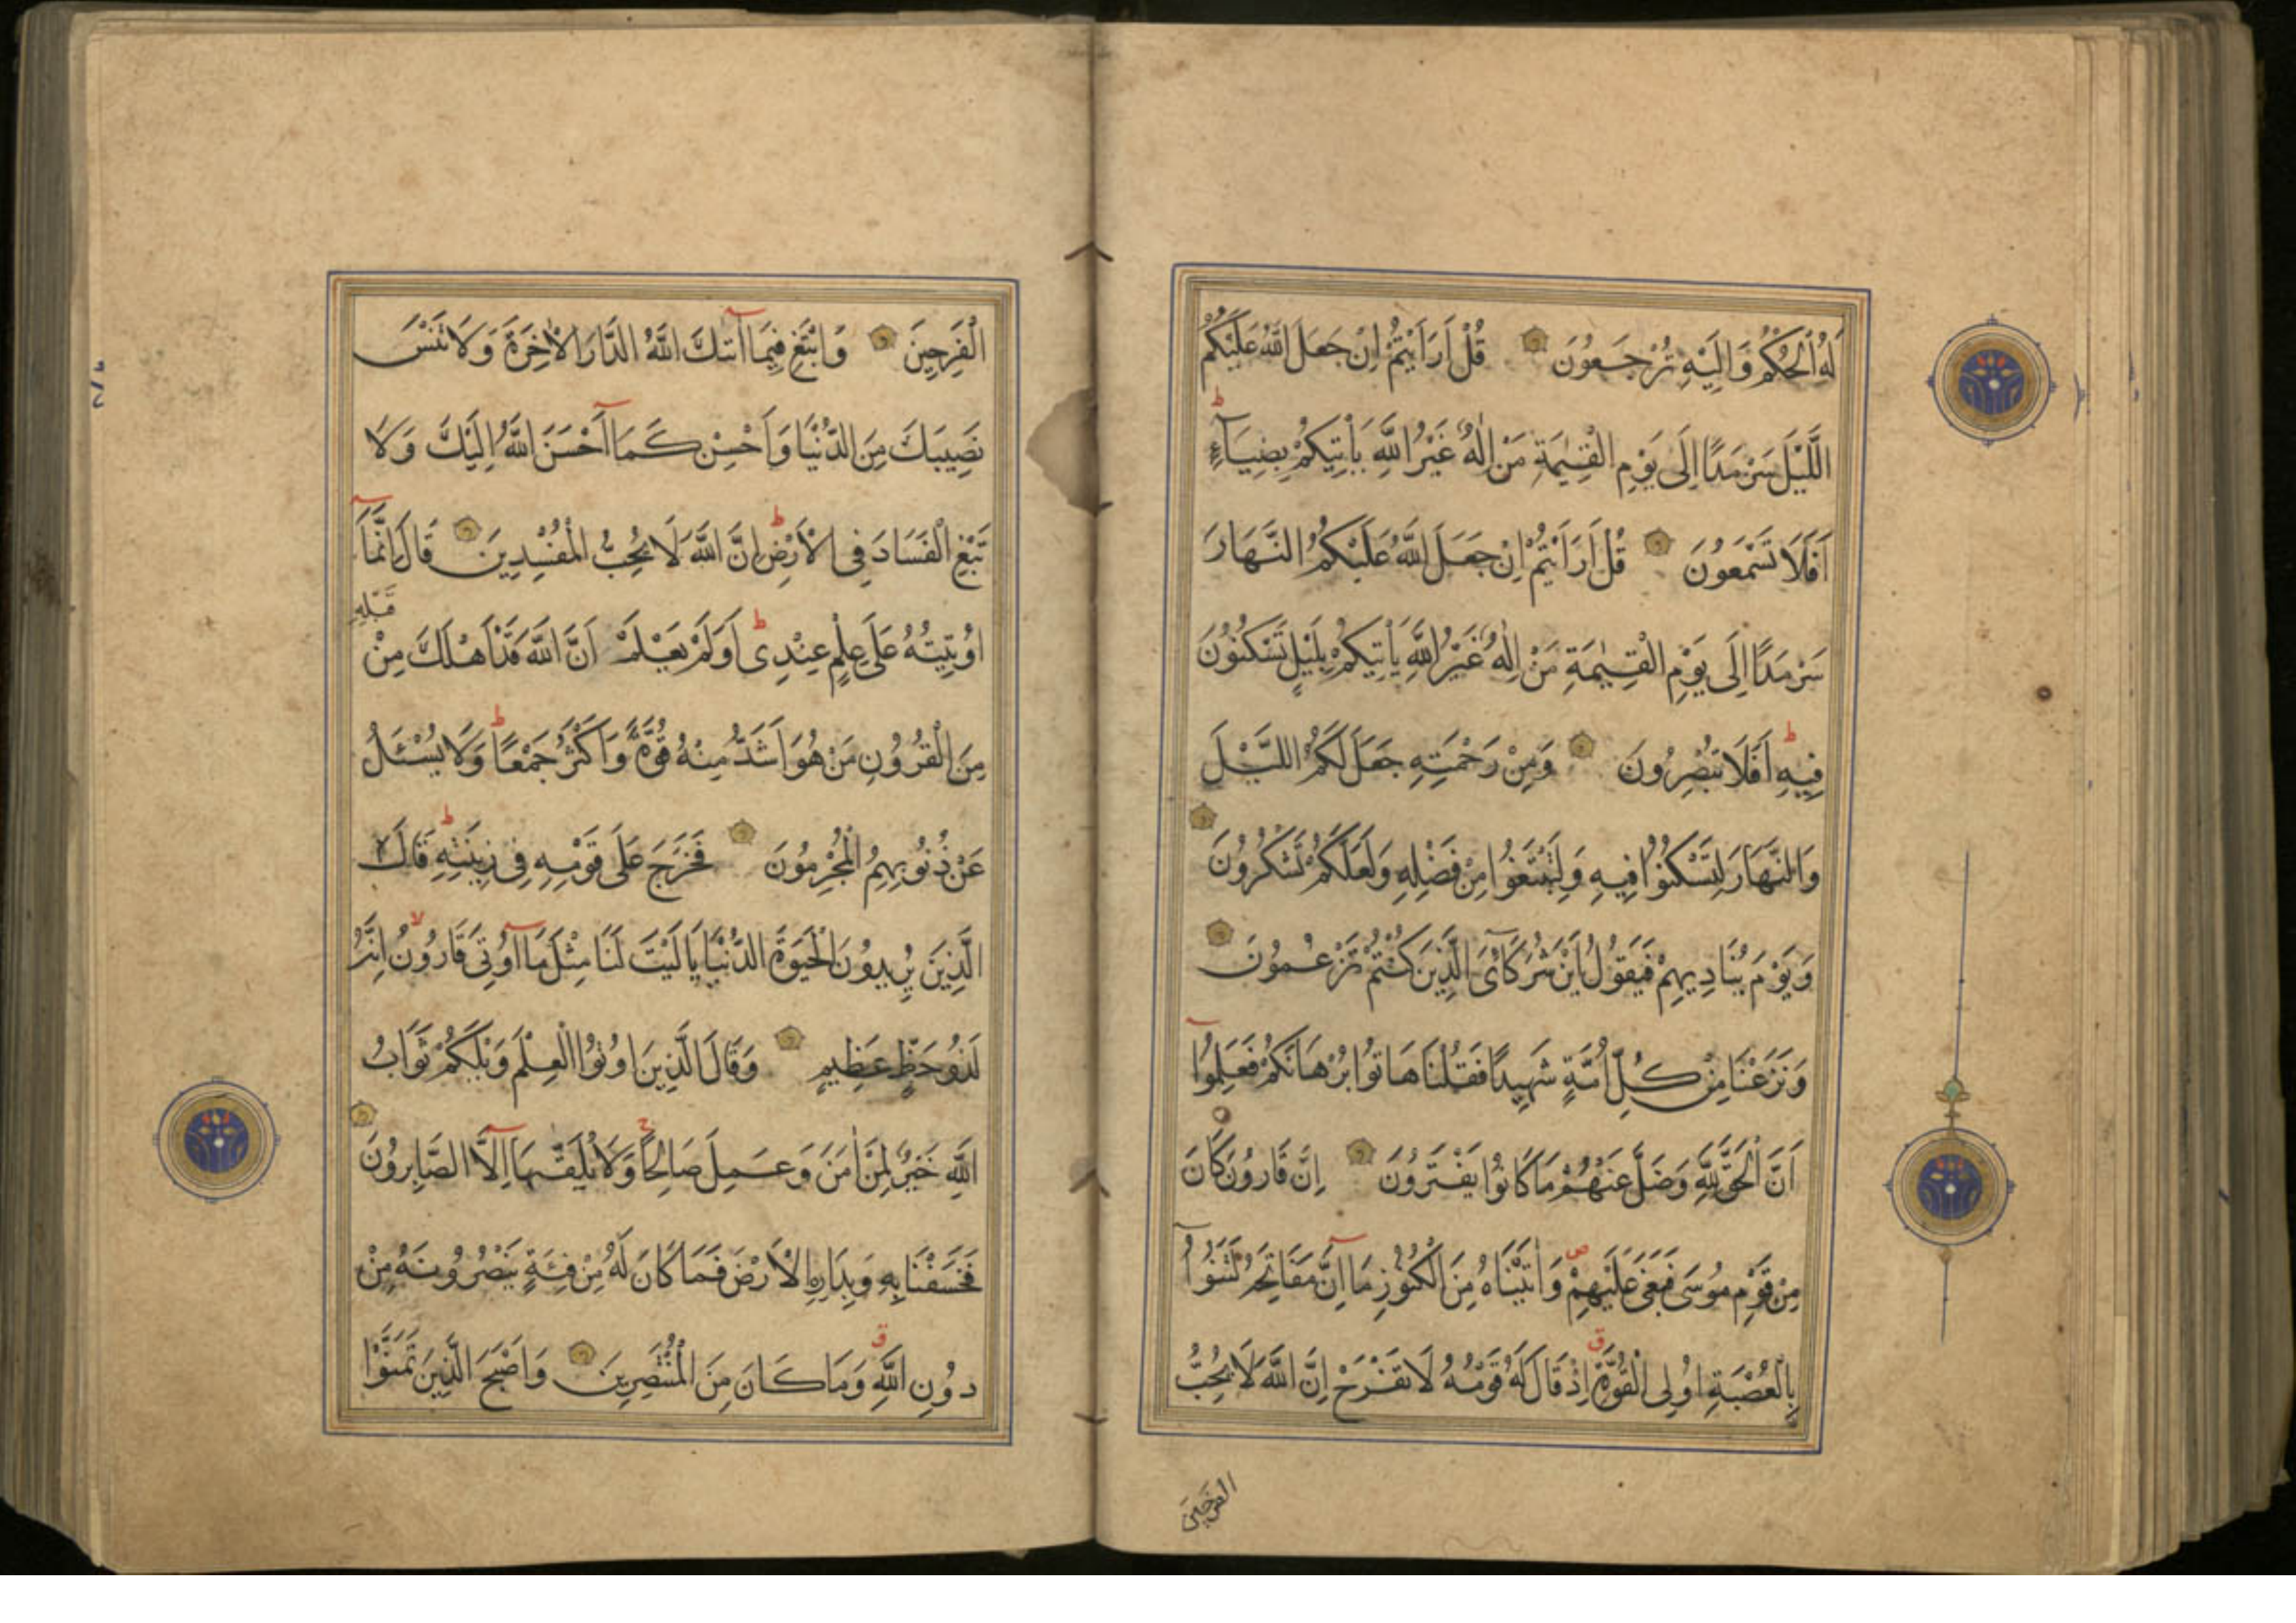 لَهُ الْحُكْمُ وَاِلَيْهِ تُرْجَعُونَ قُلْ اَرَاَيْتُمْ اِنْ جَعَلَ اللّٰهُ عَلَيْكُمُ
اللَّيْلَ سَرْمَدًا اِلَى يَوْمِ الْقِيٰمَةِ مَنْ اِلٰهٌ غَيْرُ اللّٰهِ يَاْتِيكُمْ بِضِيَآءٍ ط
اَفَلَا تَسْمَعُونَ قُلْ اَرَاَيْتُمْ اِنْ جَعَلَ اللّٰهُ عَلَيْكُمُ النَّهَارَ
سَرْمَدًا اِلَى يَوْمِ الْقِيٰمَةِ مَنْ اِلٰهٌ غَيْرُ اللّٰهِ يَاْتِيكُمْ بِلَيْلٍ تَسْكُنُونَ
فِيهِ ط اَفَلَا تُبْصِرُونَ وَمِنْ رَحْمَتِهِ جَعَلَ لَكُمُ اللَّيْلَ
وَالنَّهَارَ لِتَسْكُنُوا فِيهِ وَلِتَبْتَغُوا مِنْ فَضْلِهِ وَلَعَلَّكُمْ تَشْكُرُونَ
وَيَوْمَ يُنَادِيهِمْ فَيَقُولُ اَيْنَ شُرَكَآئِىَ الَّذِينَ كُنْتُمْ تَزْعُمُونَ
وَنَزَعْنَا مِنْ كُلِّ اُمَّةٍ شَهِيدًا فَقُلْنَا هَاتُوا بُرْهَانَكُمْ فَعَلِمُوٓا
اَنَّ الْحَقَّ لِلّٰهِ وَضَلَّ عَنْهُمْ مَا كَانُوا يَفْتَرُونَ اِنَّ قَارُونَ كَانَ
مِنْ قَوْمِ مُوسَى فَبَغَى عَلَيْهِمْ ص وَاٰتَيْنَاهُ مِنَ الْكُنُوزِ مَآ اِنَّ مَفَاتِحَهُ لَتَنُوٓاُ
بِالْعُصْبَةِ اُولِى الْقُوَّةِ ق اِذْ قَالَ لَهُ قَوْمُهُ لَا تَفْرَحْ اِنَّ اللّٰهَ لَا يُحِبُّ
الفرحين
الْفَرِحِينَ وَابْتَغِ فِيمَآ اٰتٰىكَ اللّٰهُ الدَّارَ الْاٰخِرَةَ وَلَا تَنْسَ
نَصِيبَكَ مِنَ الدُّنْيَا وَاَحْسِنْ كَمَآ اَحْسَنَ اللّٰهُ اِلَيْكَ وَلَا
تَبْغِ الْفَسَادَ فِى الْاَرْضِ ط اِنَّ اللّٰهَ لَا يُحِبُّ الْمُفْسِدِينَ قَالَ اِنَّمَآ
اُوتِيتُهُ عَلَى عِلْمٍ عِنْدِى ط اَوَلَمْ يَعْلَمْ اَنَّ اللّٰهَ قَدْ اَهْلَكَ مِنْ قَبْلِهِ
مِنَ الْقُرُونِ مَنْ هُوَ اَشَدُّ مِنْهُ قُوَّةً وَاَكْثَرُ جَمْعًا ط وَلَا يُسْئَلُ
عَنْ ذُنُوبِهِمُ الْمُجْرِمُونَ فَخَرَجَ عَلَى قَوْمِهِ فِى زِينَتِهِ ط قَالَ
الَّذِينَ يُرِيدُونَ الْحَيٰوةَ الدُّنْيَا يَا لَيْتَ لَنَا مِثْلَ مَآ اُوتِىَ قَارُونُ لا اِنَّهُ
لَذُو حَظٍّ عَظِيمٍ وَقَالَ الَّذِينَ اُوتُوا الْعِلْمَ وَيْلَكُمْ ثَوَابُ
اللّٰهِ خَيْرٌ لِمَنْ اٰمَنَ وَعَمِلَ صَالِحًا ج وَلَا يُلَقّٰيهَآ اِلَّا الصَّابِرُونَ
فَخَسَفْنَا بِهِ وَبِدَارِهِ الْاَرْضَ فَمَا كَانَ لَهُ مِنْ فِئَةٍ يَنْصُرُونَهُ مِنْ
دُونِ اللّٰهِ ق وَمَا كَانَ مِنَ الْمُنْتَصِرِينَ وَاَصْبَحَ الَّذِينَ تَمَنَّوْا